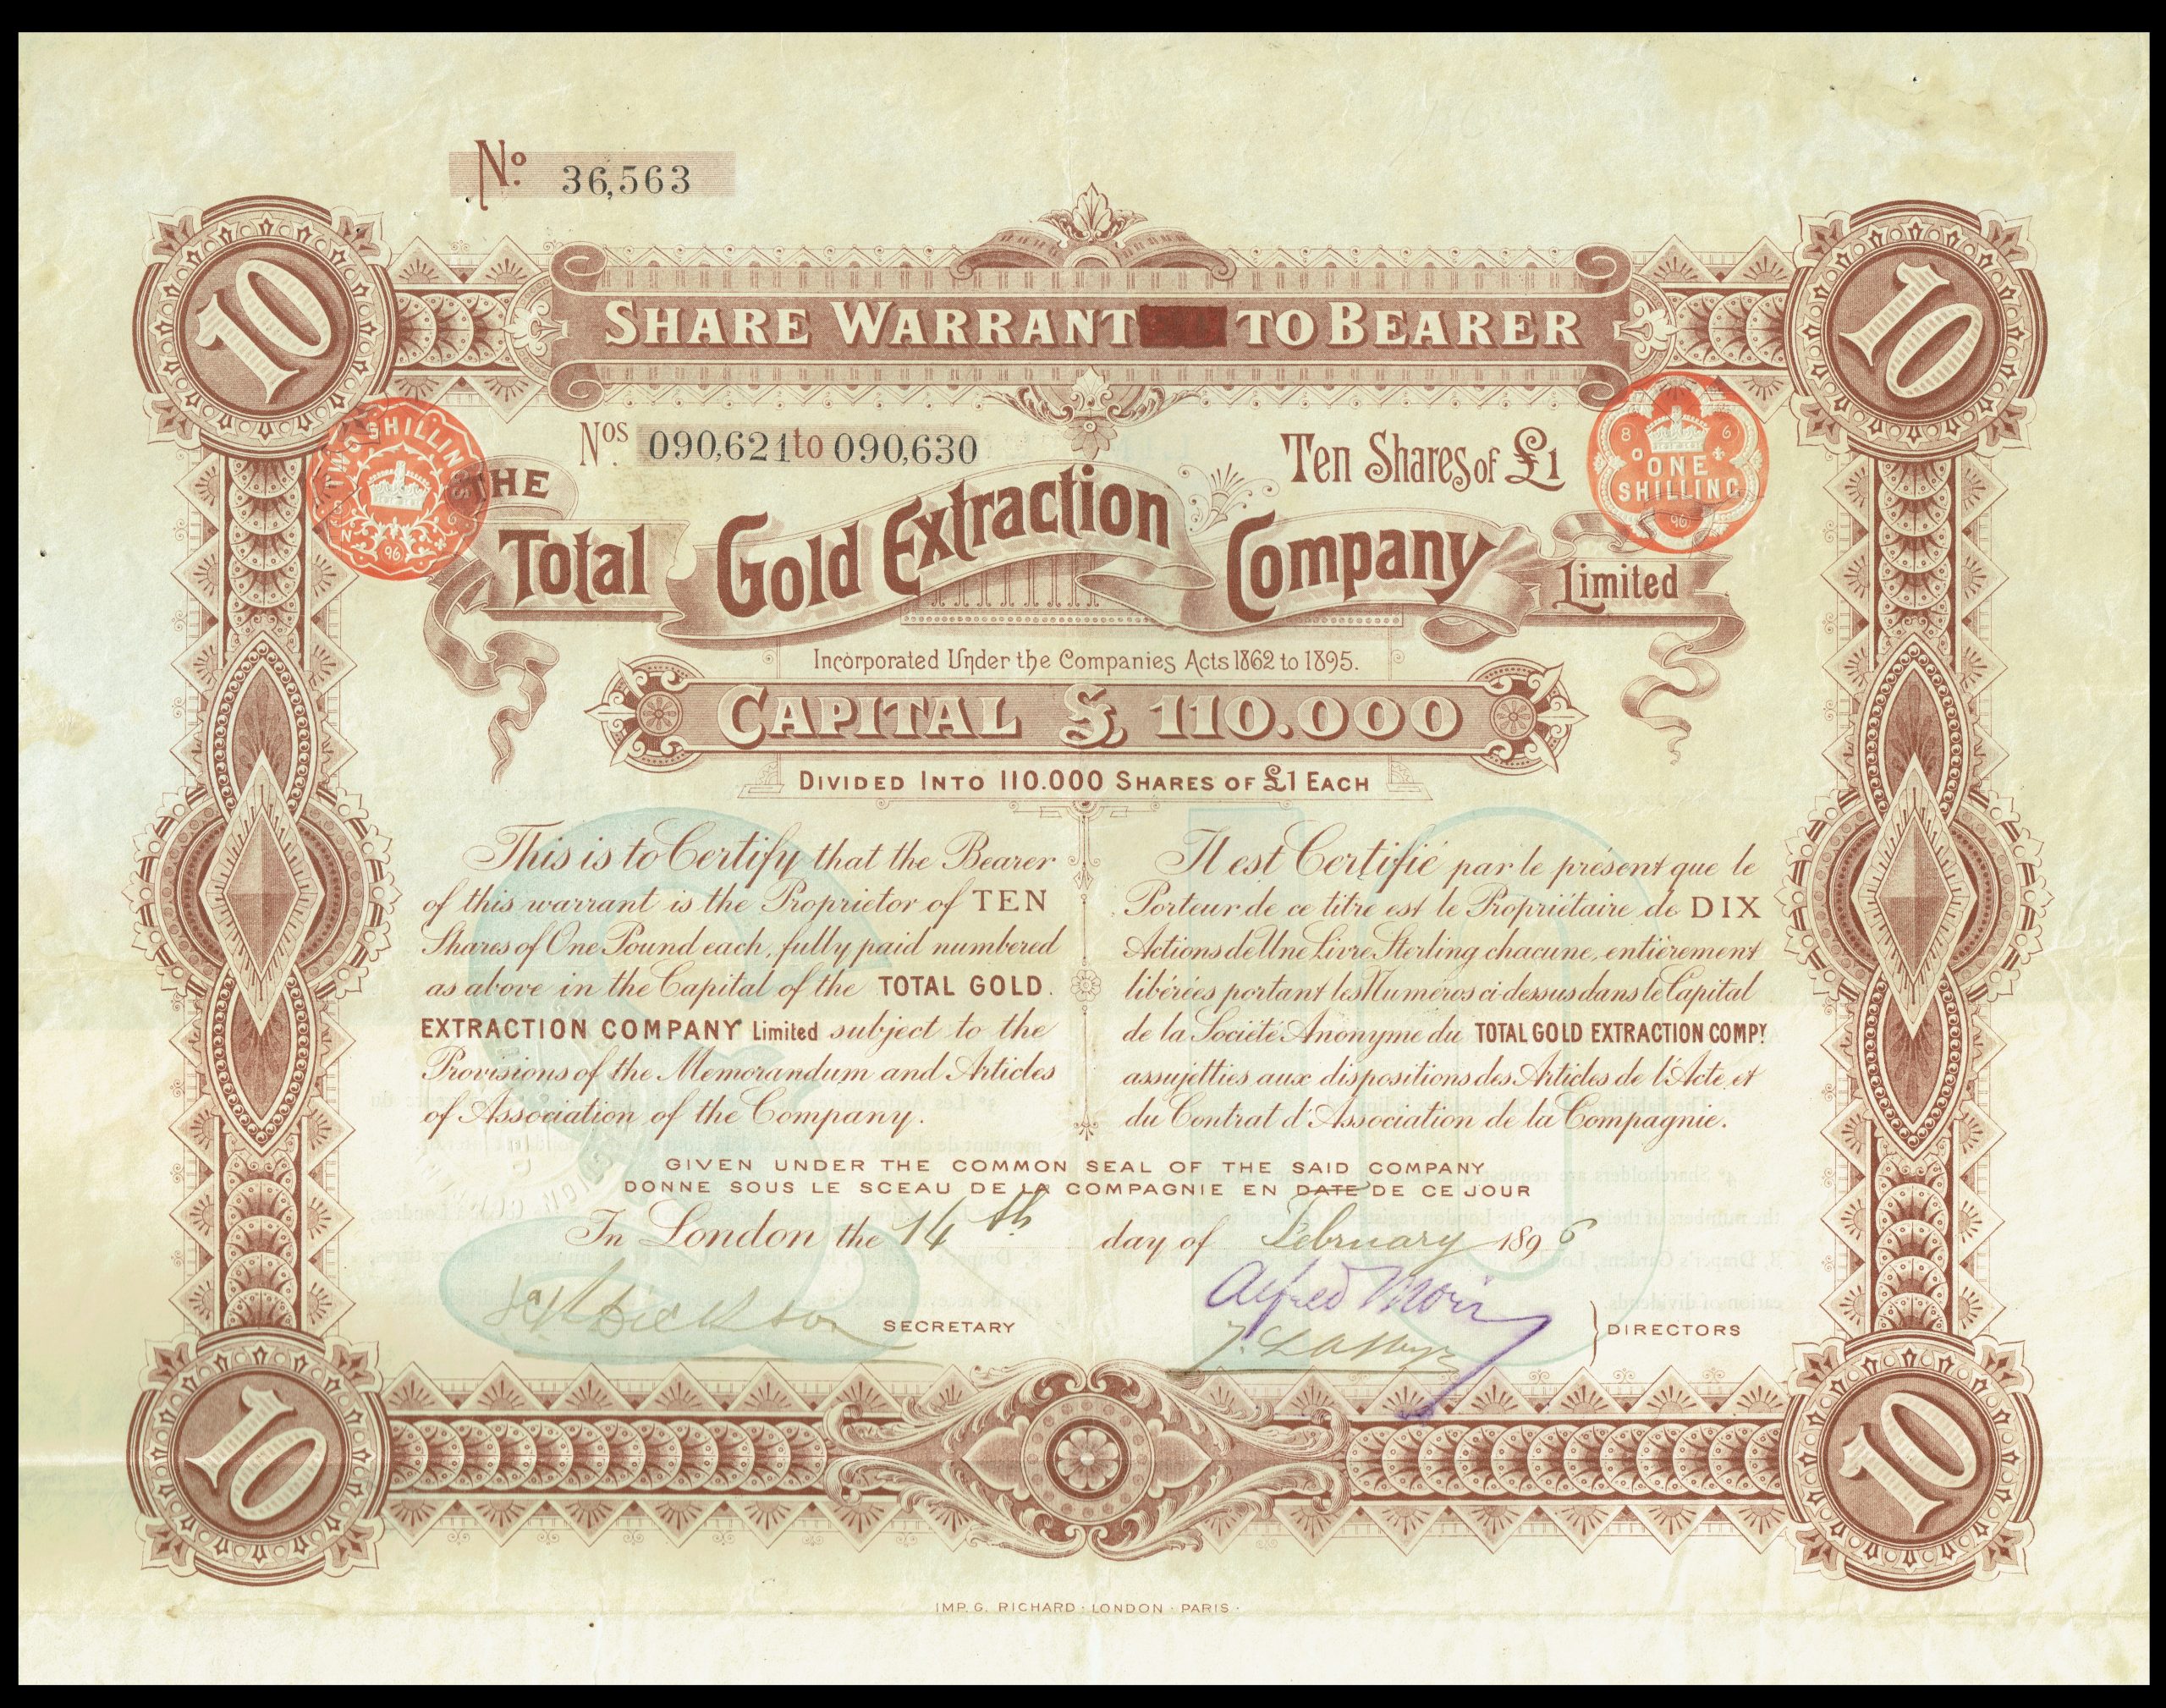 No. 36,563
10
10
SHARE WARRANT TO BEARER
Nos. 090,621 to 090,630
Ten Shares of £1
TWO SHILLINGS
N 96
8 6
ONE
SHILLING
96
THE
Total Gold Extraction Company Limited
Incorporated Under the Companies Acts 1862 to 1895.
CAPITAL £ 110.000
DIVIDED INTO 110.000 SHARES OF £1 EACH
This is to Certify that the Bearer
of this warrant is the Proprietor of TEN
Shares of One Pound each, fully paid numbered
as above in the Capital of the TOTAL GOLD.
EXTRACTION COMPANY Limited subject to the
Provisions of the Memorandum and Articles
of Association of the Company.
Il est Certifié par le présent que le
Porteur de ce titre est le Propriétaire de DIX
Actions de Une Livre Sterling chacune, entièrement
libérées portant les Numéros ci dessus dans le Capital
de la Société Anonyme du TOTAL GOLD EXTRACTION COMPY.
assujetties aux dispositions des Articles de l'Acte et
du Contrat d'Association de la Compagnie.
GIVEN UNDER THE COMMON SEAL OF THE SAID COMPANY
DONNE SOUS LE SCEAU DE LA COMPAGNIE EN DATE DE CE JOUR
In London the 14th day of February 1896
Dickson SECRETARY
Alfred Moir
DIRECTORS
10
10
IMP. G. RICHARD · LONDON · PARIS ·